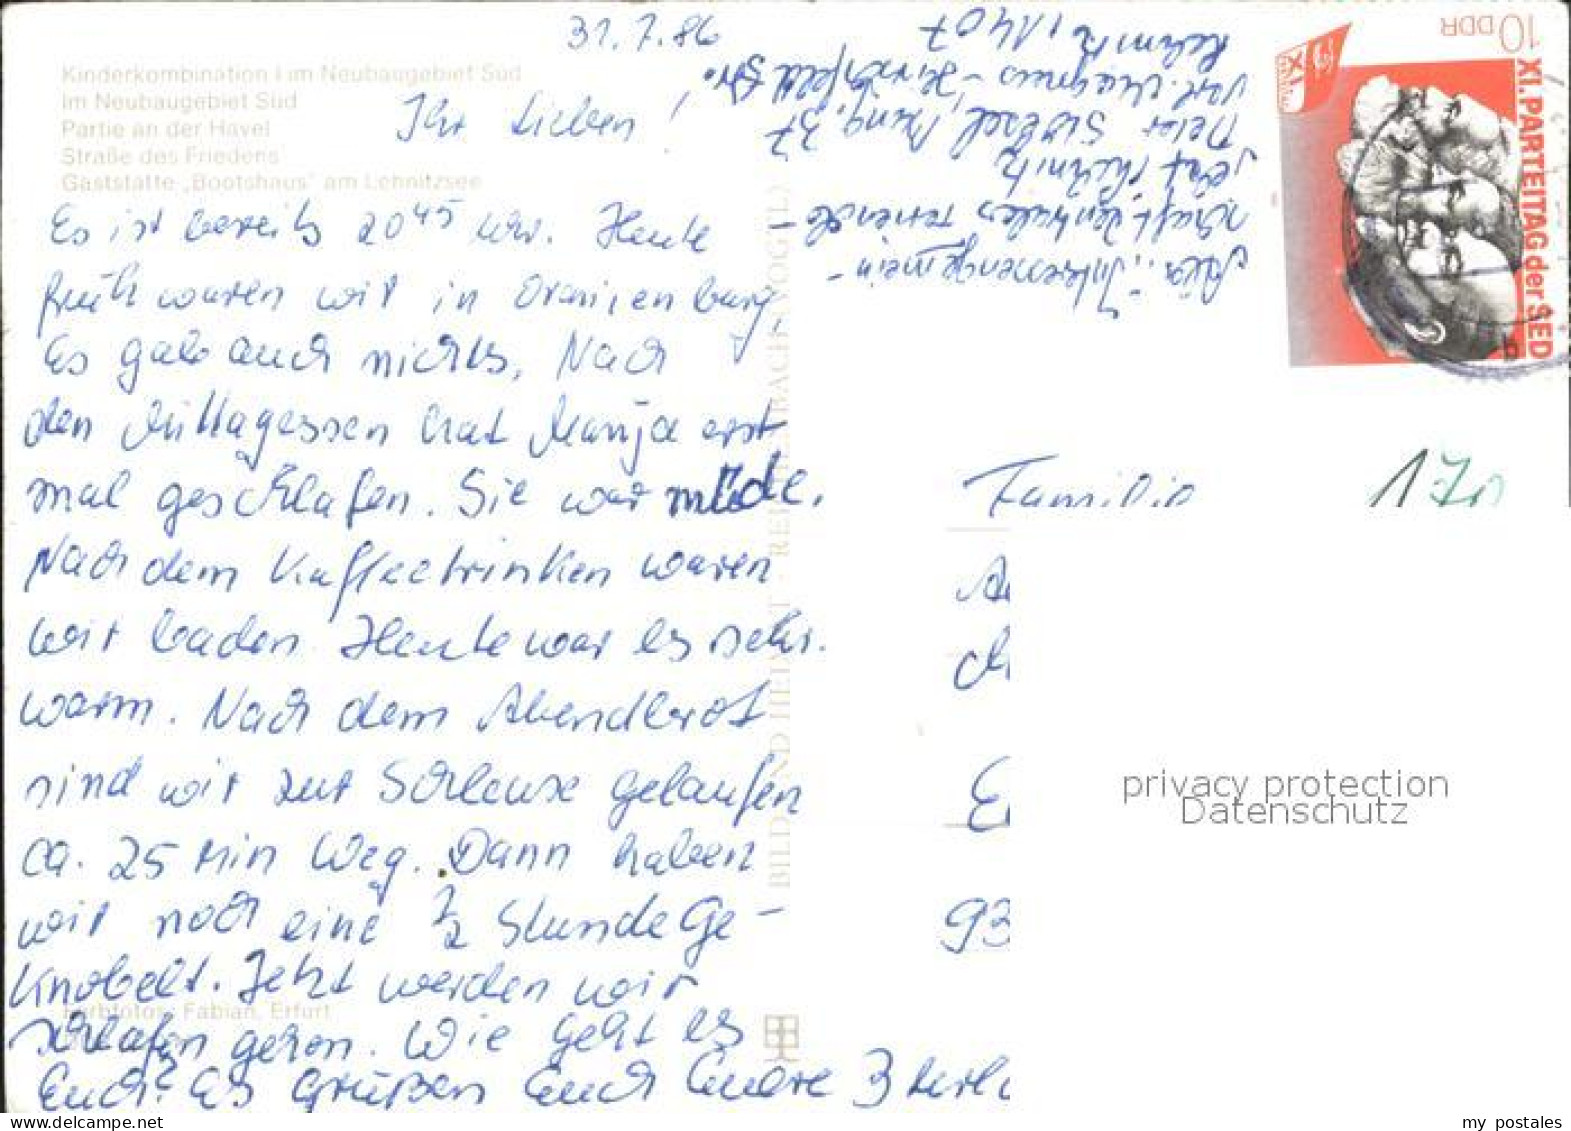 31.7.86
Kinderkombination I im Neubaugebiet Süd
Im Neubaugebiet Süd
Partie an der Havel
Straße des Friedens
Gaststätte „Bootshaus" am Lehnitzsee
Ihr Lieben!
Es ist bereits 20 45 Uhr. Heute
früh waren wir in Oranienburg,
Es gab auch nichts, Nach
den Mittagessen hat Manja erst
mal geschlafen. Sie war müde.
Nach dem Kaffeetrinken waren
wir baden. Heute war es sehr.
warm. Nach dem Abendbrot
sind wir zur Schleuse gelaufen
ca. 25 Min Weg. Dann haben
wir noch eine 1/2 Stunde Ge-
knobelt. Jetzt werden wir
schlafen gehen. Wie geht es
Euch? Es Grüßen Euch Eure 3
Farbfotos: Fabian, Erfurt
BILD UND HEIMAT REICHENBACH (VOGTL)
10 DDR
XI. PARTEITAG der SED
XI
„Interessengemein-
schaft Zentrales
Peter
Str.
1407
Familie
170
93
privacy protection
Datenschutz
my_postales